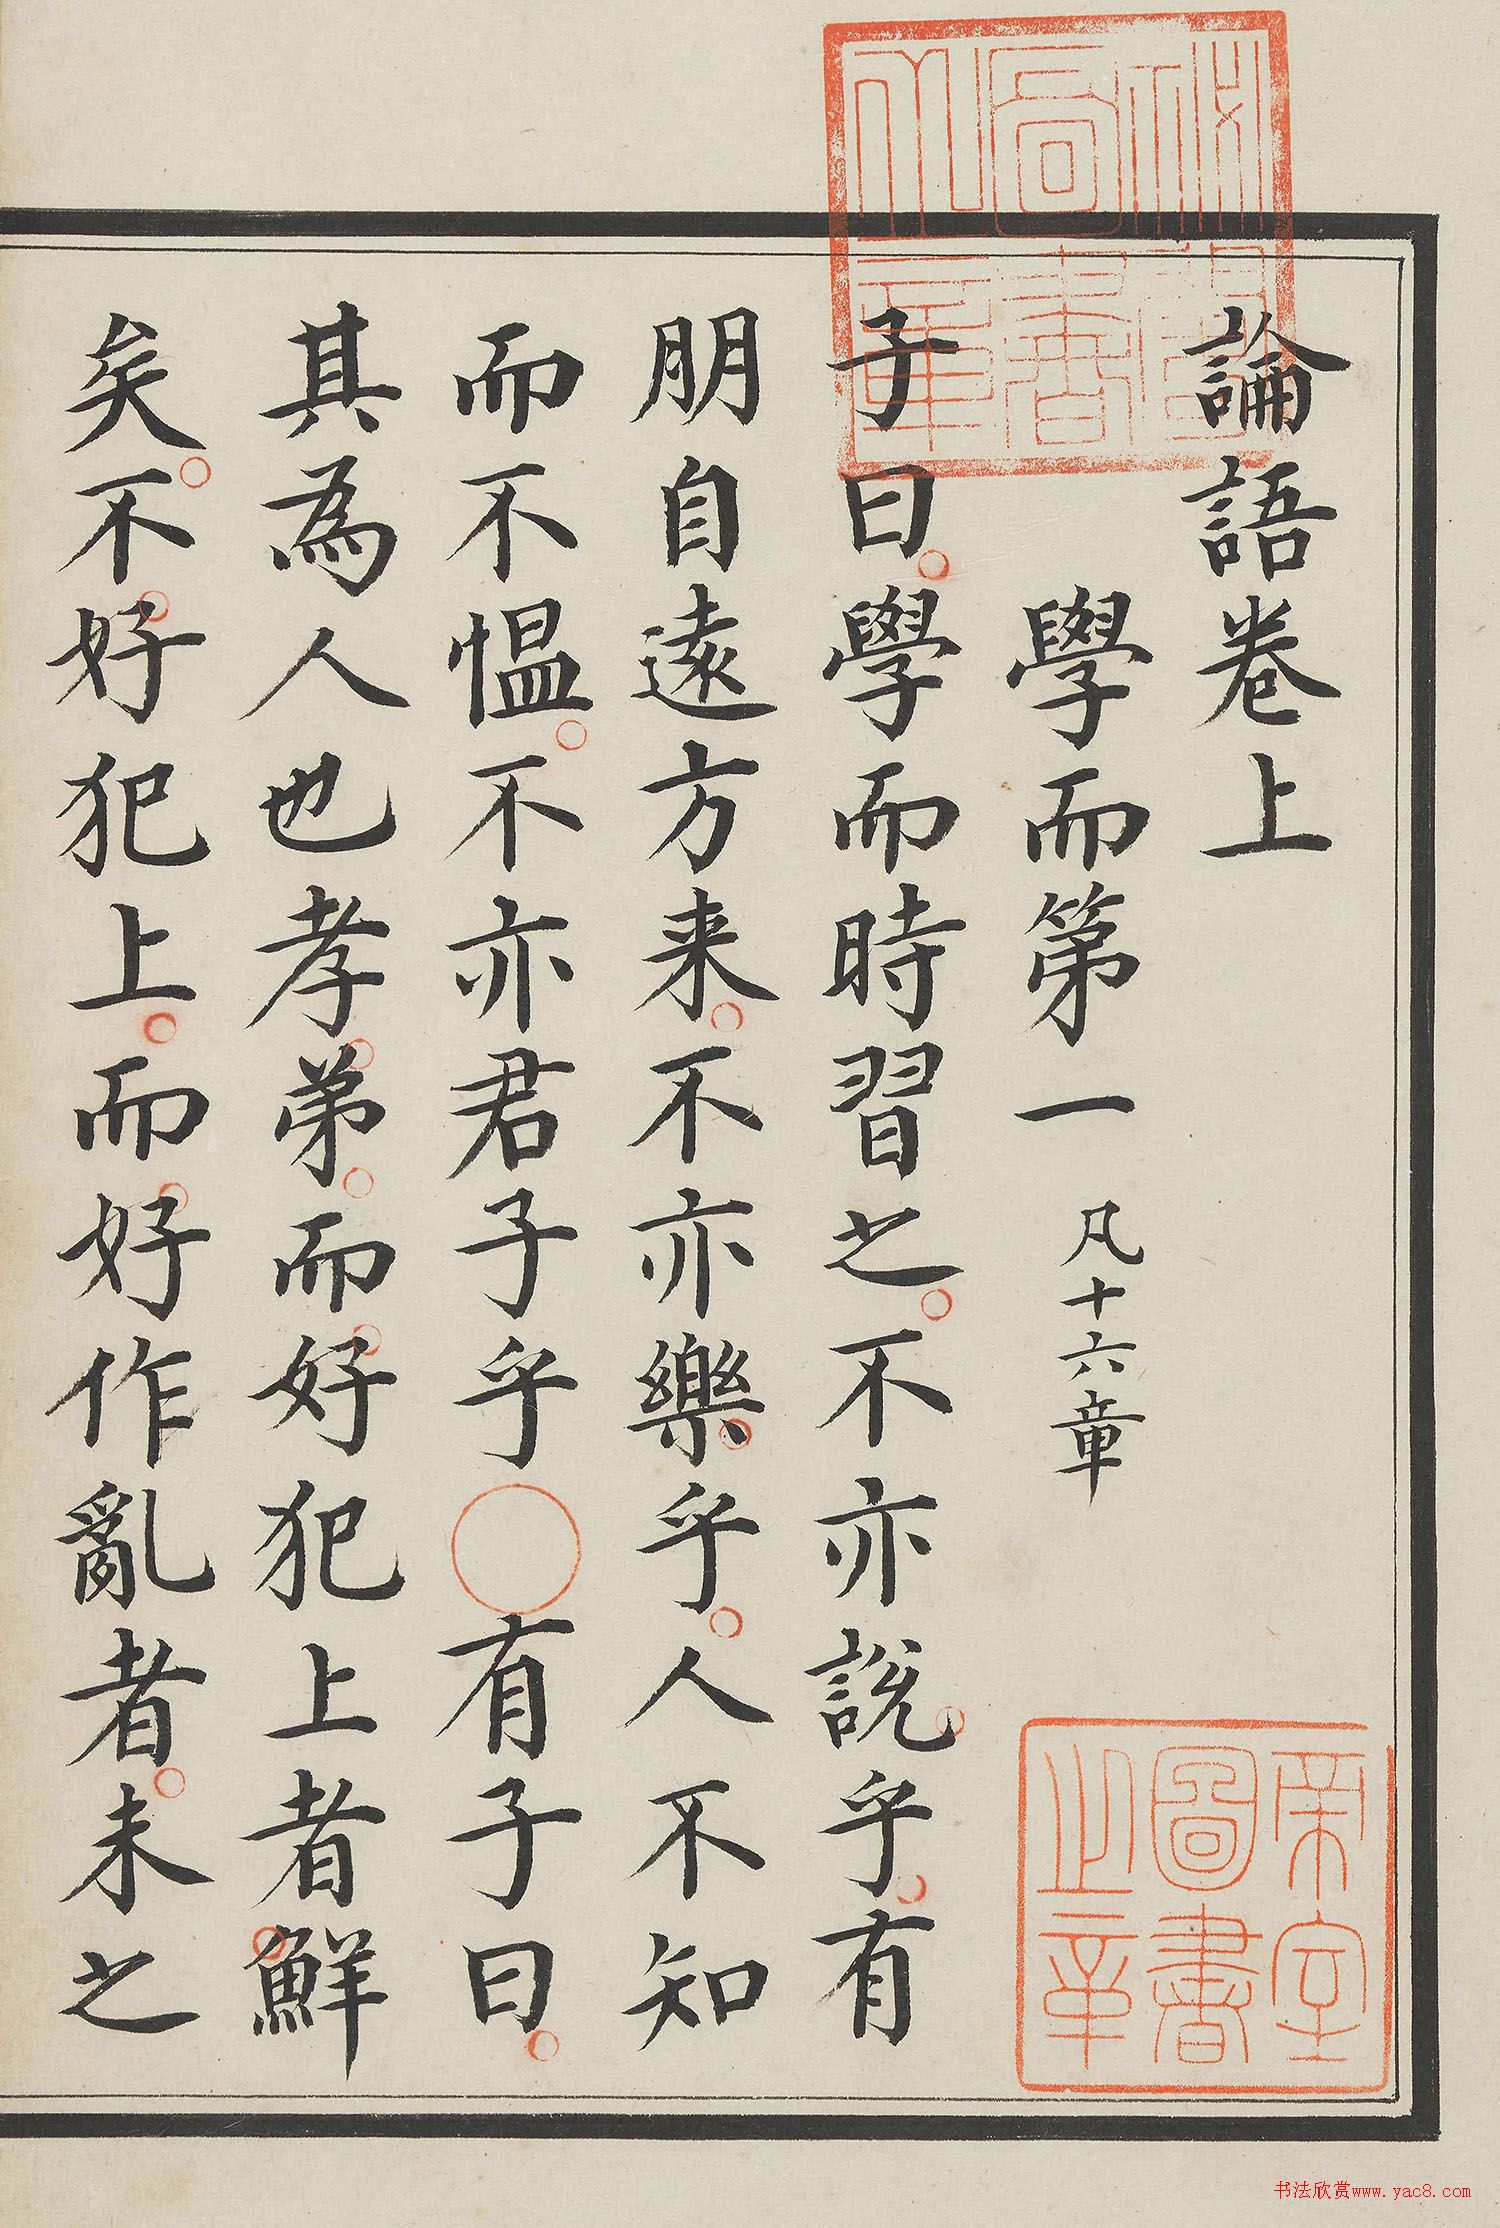 論語卷上
學而第一 凡十六章
子曰學而時習之不亦說乎有
朋自遠方来不亦樂乎人不知
而不愠不亦君子乎有子曰
其為人也孝弟而好犯上者鮮
矣不好犯上而好作亂者未之
榮室
圖書
之章
書法欣赏www.yac8.com